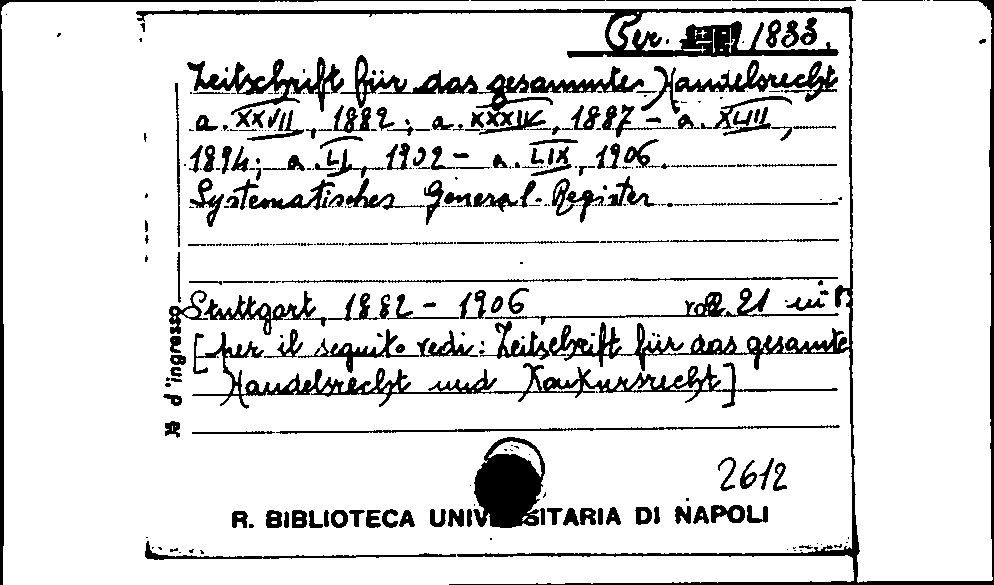 Per. 1833.
Zeitschrift für das gesammte Handelsrecht
a. XXVII, 1882; a. XXXIV, 1887 - a. XLIII,
1894; a. LI, 1902 - a. LIX, 1906.
Systematisches General-Register.
Stuttgart, 1882 - 1906, vol. 21 in 8º
[per il seguito vedi: Zeitschrift für das gesamte
Handelsrecht und Konkursrecht]
d'ingresso
2612
R. BIBLIOTECA UNIVERSITARIA DI NAPOLI